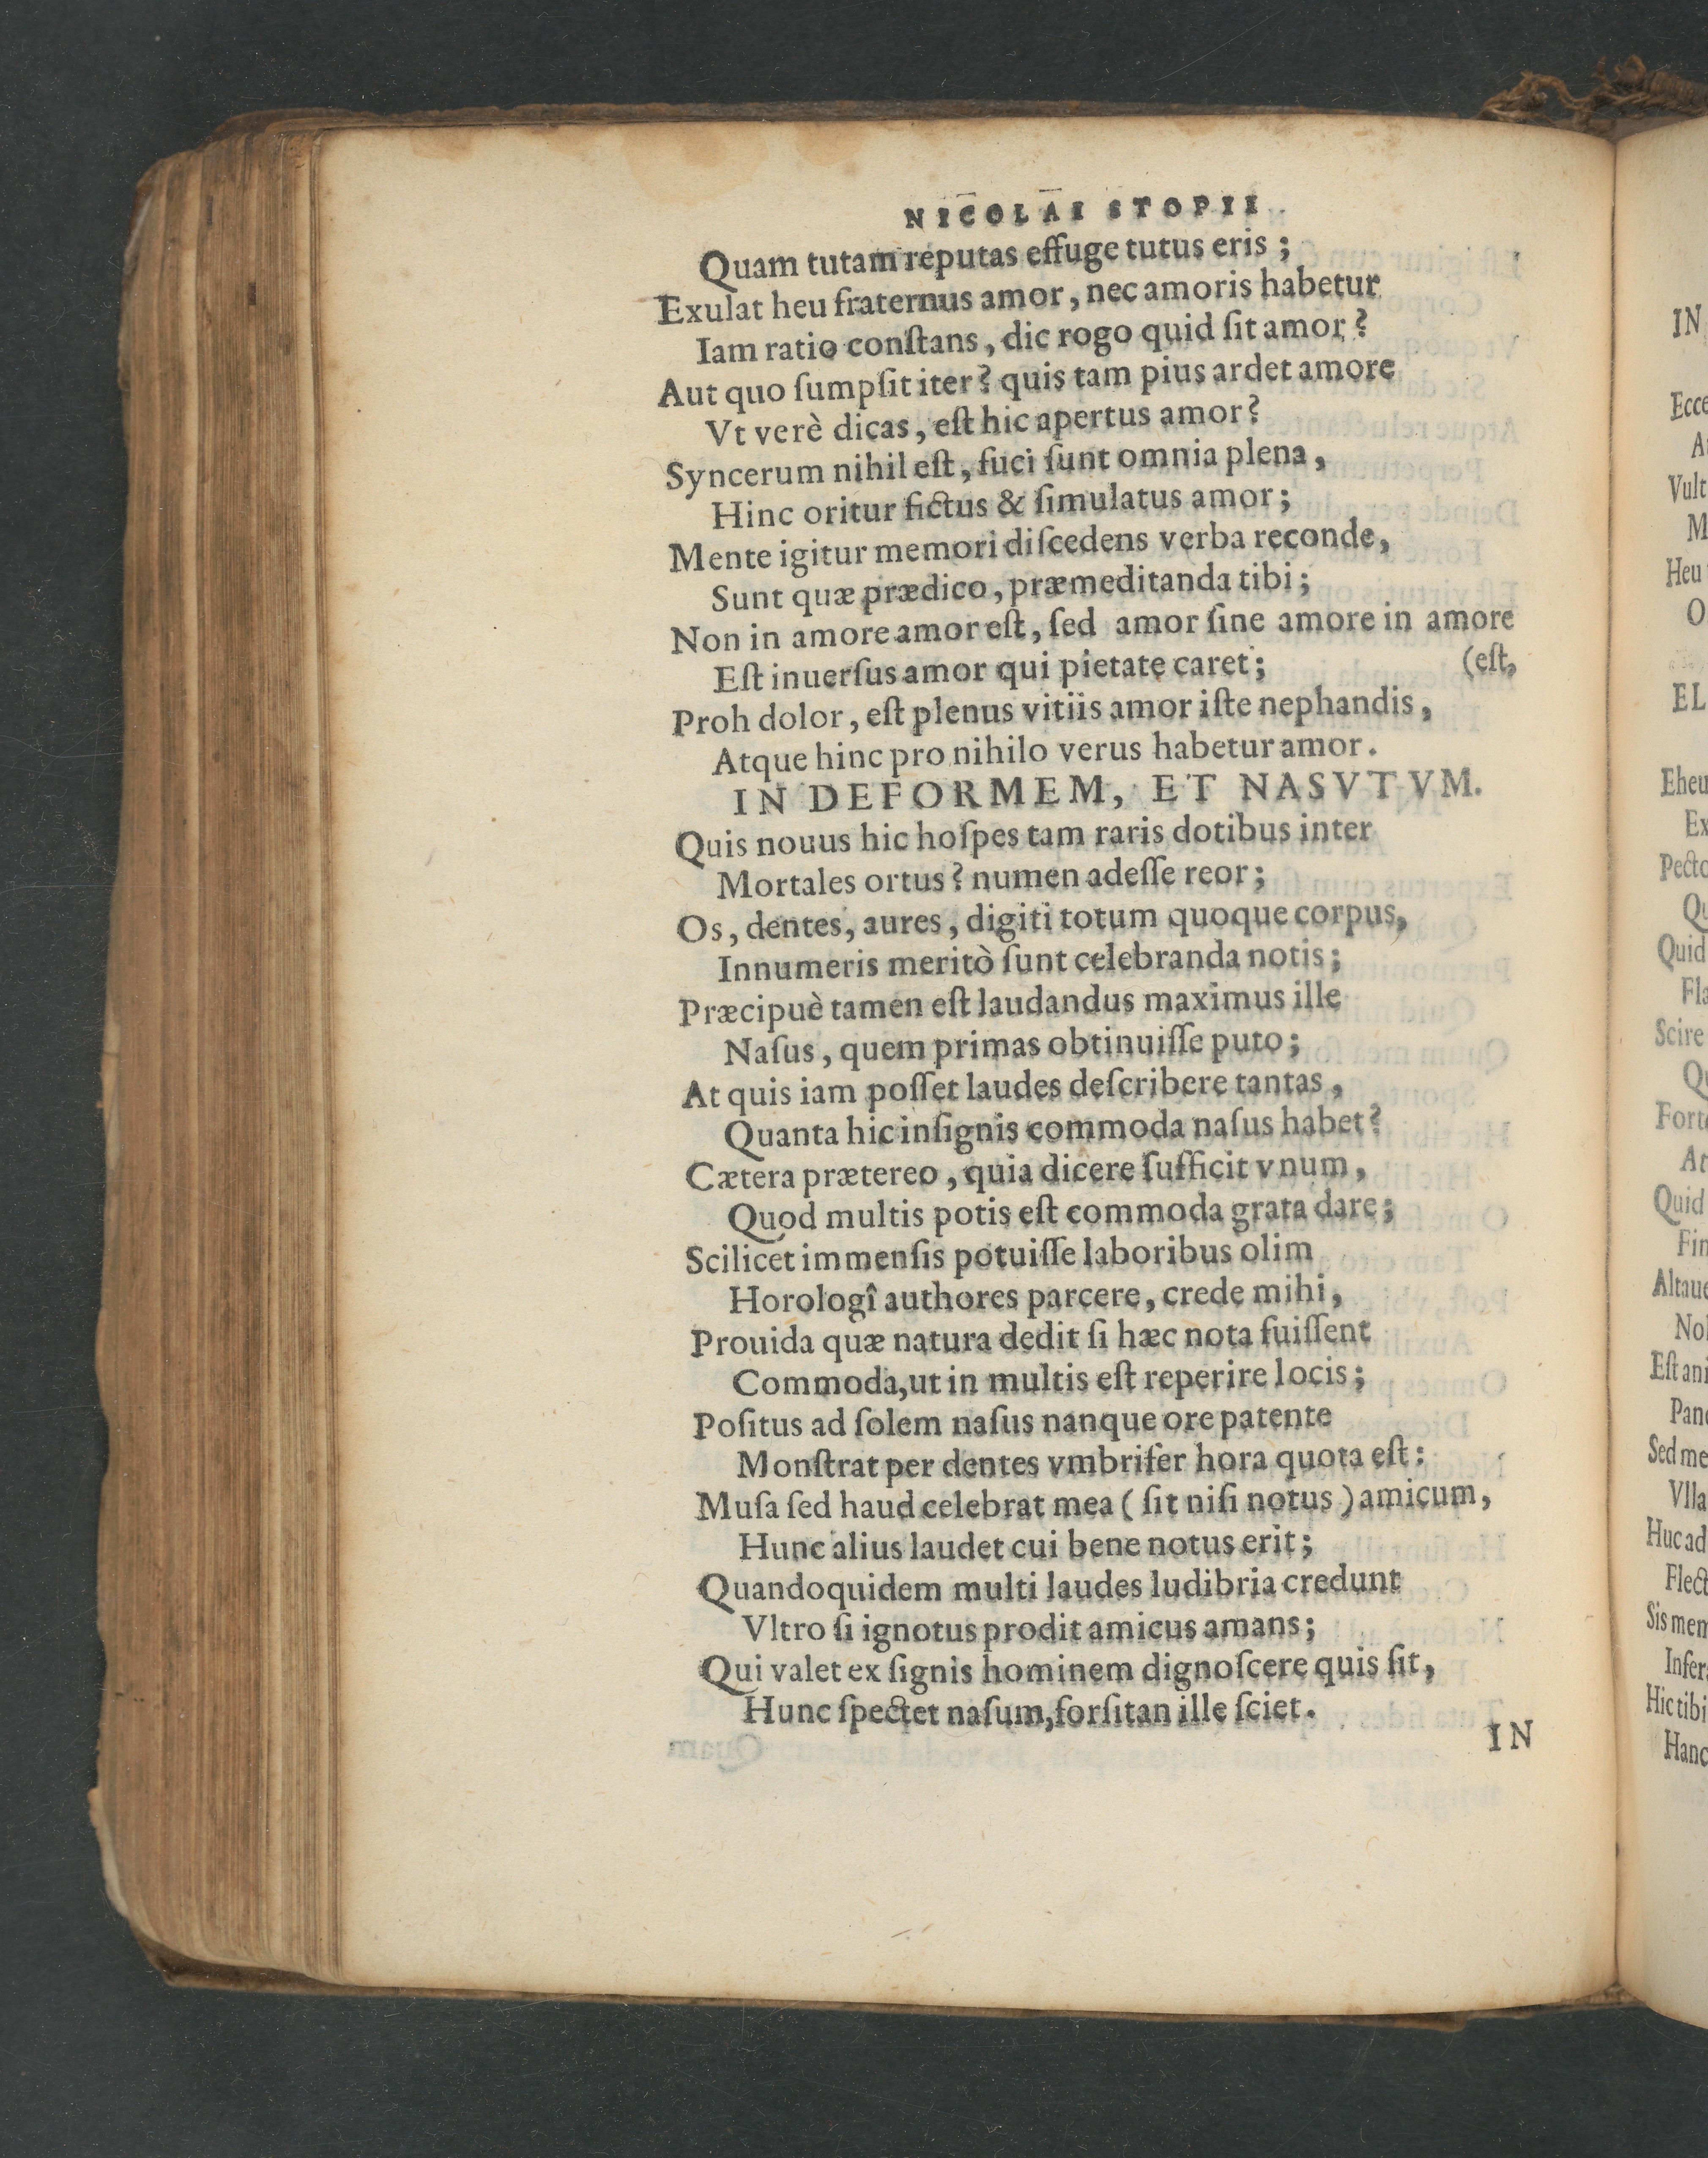 NICOLAI STOPII
Quam tutam reputas effuge tutus eris ;
Exulat heu fraternus amor, nec amoris habetur
Iam ratio conſtans, dic rogo quid ſit amor ?
Aut quo ſumpſit iter ? quis tam pius ardet amore
Vt verè dicas, eſt hic apertus amor ?
Syncerum nihil eſt, fuci ſunt omnia plena,
Hinc oritur fictus & ſimulatus amor ;
Mente igitur memori diſcedens verba reconde,
Sunt quæ prædico, præmeditanda tibi ;
Non in amore amor eſt, ſed amor ſine amore in amore
Eſt inuerſus amor qui pietate caret ; (eſt,
Proh dolor, eſt plenus vitiis amor iſte nephandis,
Atque hinc pro nihilo verus habetur amor.
IN DEFORMEM, ET NASVTVM.
Quis nouus hic hoſpes tam raris dotibus inter
Mortales ortus ? numen adeſſe reor ;
Os, dentes, aures, digiti totum quoque corpus,
Innumeris meritò ſunt celebranda notis ;
Præcipuè tamen eſt laudandus maximus ille
Naſus, quem primas obtinuiſſe puto ;
At quis iam poſſet laudes deſcribere tantas,
Quanta hic inſignis commoda naſus habet ?
Cætera prætereo, quia dicere ſufficit vnum,
Quod multis potis eſt commoda grata dare ;
Scilicet immenſis potuiſſe laboribus olim
Horologî authores parcere, crede mihi,
Prouida quæ natura dedit ſi hæc nota fuiſſent
Commoda, ut in multis eſt reperire locis ;
Poſitus ad ſolem naſus nanque ore patente
Monſtrat per dentes vmbrifer hora quota eſt :
Muſa ſed haud celebrat mea ( ſit niſi notus ) amicum,
Hunc alius laudet cui bene notus erit ;
Quandoquidem multi laudes ludibria credunt
Vltro ſi ignotus prodit amicus amans ;
Qui valet ex ſignis hominem dignoſcere quis ſit,
Hunc ſpectet naſum, forſitan ille ſciet.
IN
IN
Ecce
Vult
Heu
O
EL
Eheu
Ex
Pecto
Qu
Quid
Scire
Quid
Fin
Altaue
Eſt ani
Sed me
Vlla
Huc ad
Flect
Sis mem
Hic tibi
Hanc